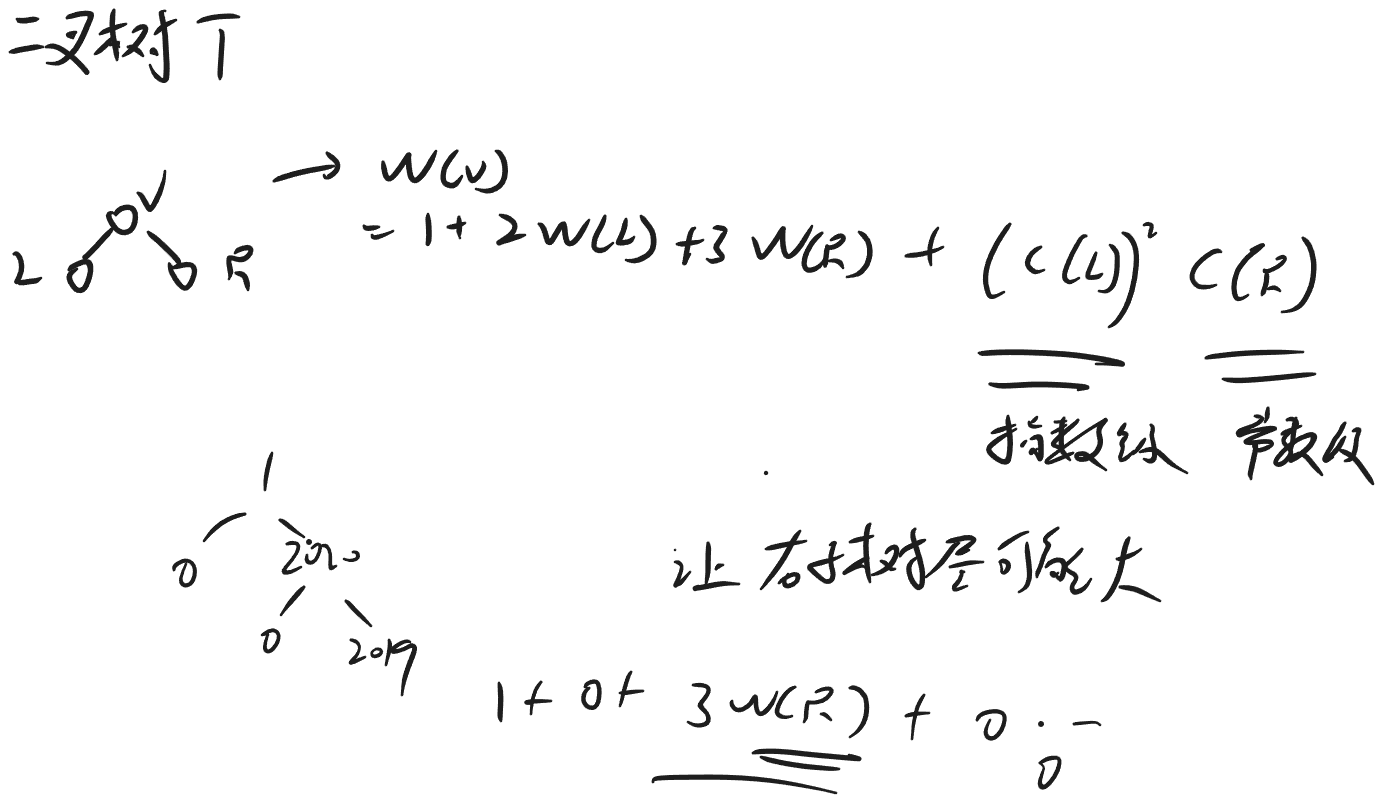 二叉树 T
V → W(v)
L R = 1 + 2W(L) + 3W(R) + (C(L))² C(R)
指数级 常数级
1
0 2020 让右子树尽可能大
0 2019
1 + 0 + 3W(R) + 0 · -
0